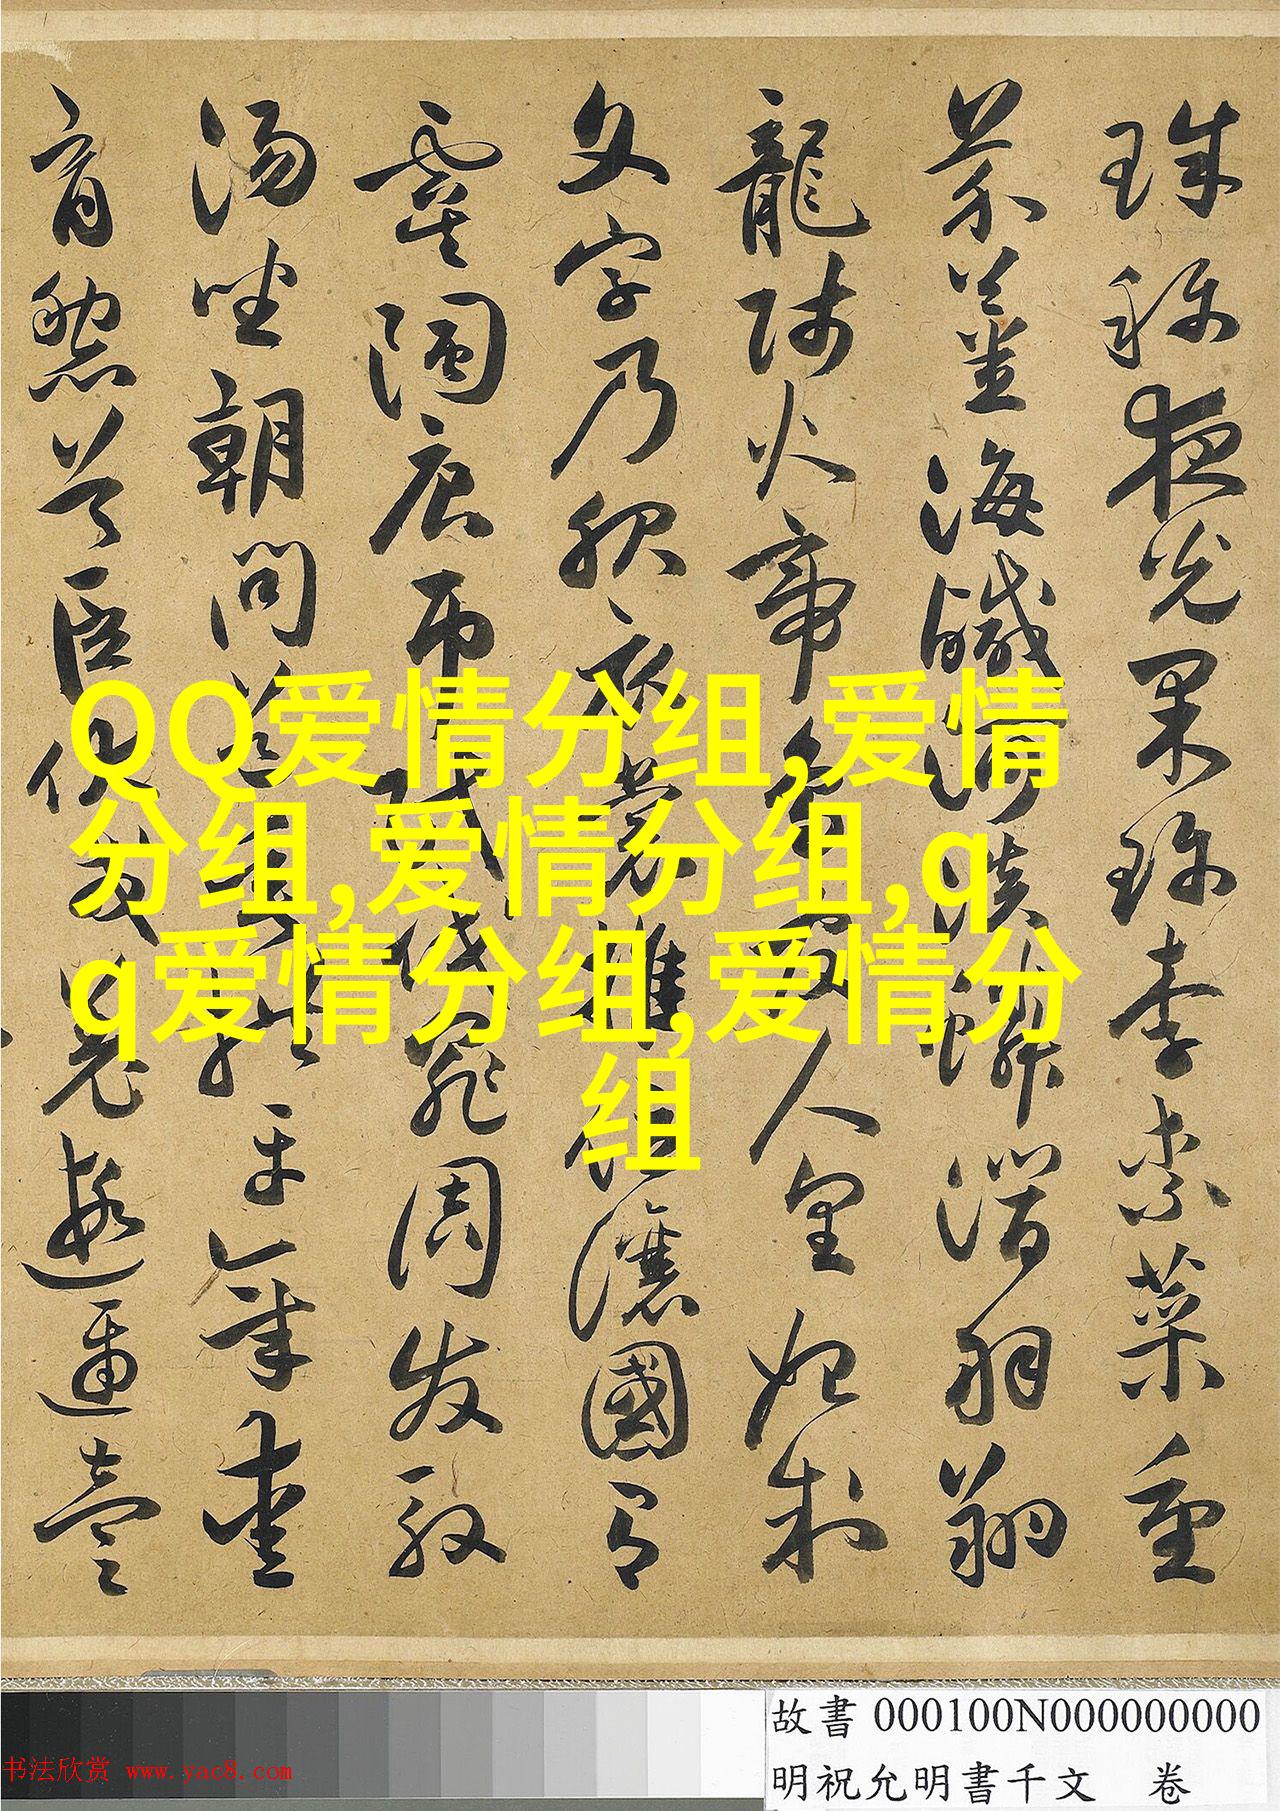 珠稱夜光果珍李柰菜重
芥薑海鹹河淡鱗潛羽翔
龍師火帝鳥官人皇始制
文字乃服衣裳推位讓國有
虞陶唐弔民伐罪周發殷
湯坐朝問道垂拱平章愛
育黎首臣伏戎羌遐邇壹
QQ爱情分组,爱情
分组,爱情分组,q
q爱情分组,爱情分
组
故書 000100N000000000
明祝允明書千文 卷
书法欣赏 www.yac8.com